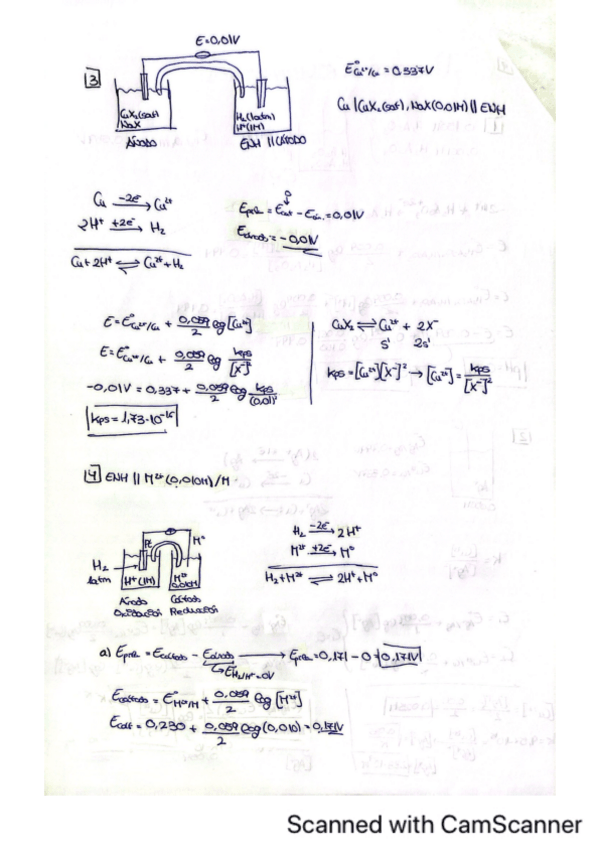 E=0,01V
3
CuX₂(sat)
NaX
H₂(1atm)
H⁺(1M)
Ánodo
ENH // Cátodo
E°Cu²⁺/Cu = 0.337V
Cu | CuX₂(sat), NaX(0.01M) || ENH
Cu -2e⁻→ Cu²⁺
2H⁺ +2e⁻→ H₂
Cu + 2H⁺ ⇌ Cu²⁺ + H₂
Epila = Ecat - Ean = 0,01V
0
Eánodo = -0,01V
E = E°Cu²⁺/Cu + 0,059/2 log [Cu²⁺]
E = E°Cu²⁺/Cu + 0,059/2 log kps/[X⁻]²
-0,01V = 0,337 + 0,059/2 log kps/(0,01)²
kps = 1,73·10⁻¹⁶
CuX₂ ⇌ Cu²⁺ + 2X⁻
s' 2s'
kps = [Cu²⁺][X⁻]² → [Cu²⁺] = kps/[X⁻]²
4 ENH || M²⁺(0,010M)/M
Pt
M°
H₂
1atm
H⁺(1M)
M²⁺
0.010M
Ánodo
Oxidación
Cátodo
Reducción
H₂ -2e⁻→ 2H⁺
M²⁺ +2e⁻→ M°
H₂ + M²⁺ ⇌ 2H⁺ + M°
a) Epila = Ecátodo - Eánodo → Epila = 0,171 - 0 = 0,171V
↳ EH₂/H⁺ = 0V
Ecátodo = E°M²⁺/M + 0,059/2 log [M²⁺]
Ecat = 0,230 + 0,059/2 log (0,010) = 0,171V
Scanned with CamScanner